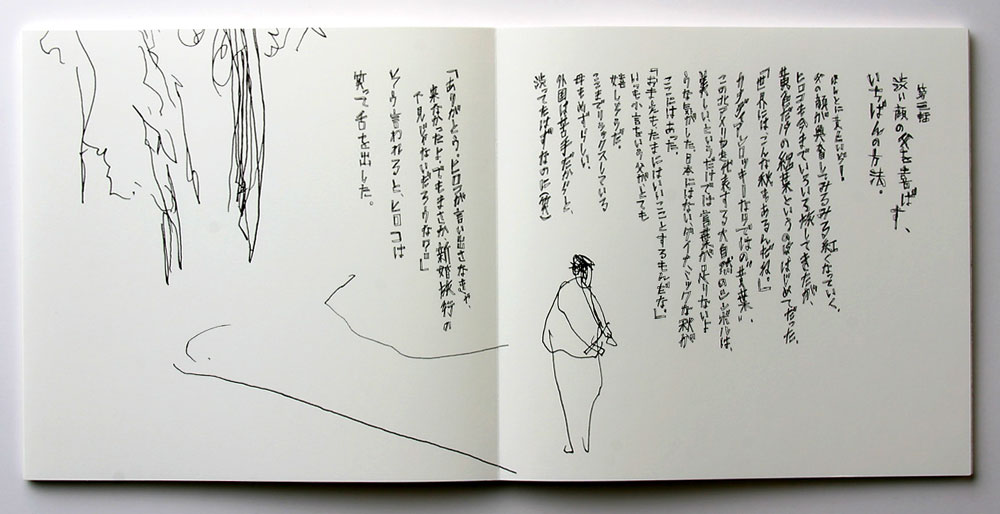 第三話
渋い顔の父を喜ばす、
いちばんの方法。
ほんとに美しいなぁ!
父の顔が興奮してみるみる紅くなっていく。
ヒロコも今までいろいろ旅してきたが、
黄色だけの紅葉というのははじめてだった。
「世界には、こんな秋もあるんだね。」
カナディアン・ロッキーならではの“黄葉”。
この北アメリカを代表する大自然のシンボルは、
美しい、というだけでは言葉が足りないよ
うな気がした。日本にはないダイナミックな秋が
ここにはあった。
「お手もたまにはいいことするもんだな。」
いつも小言をいう父がとても
嬉しそうだ。
ここまでリラックスしている
母もめずらしい。
外国は苦手だからと、
渋ってたはずなのに(笑)
「ありがとう、ヒロコが言い出さなきゃ、
来なかったよ。でもまさか新婚旅行の
下見じゃないだろうな?」
そう言われると、ヒロコは
笑って舌を出した。